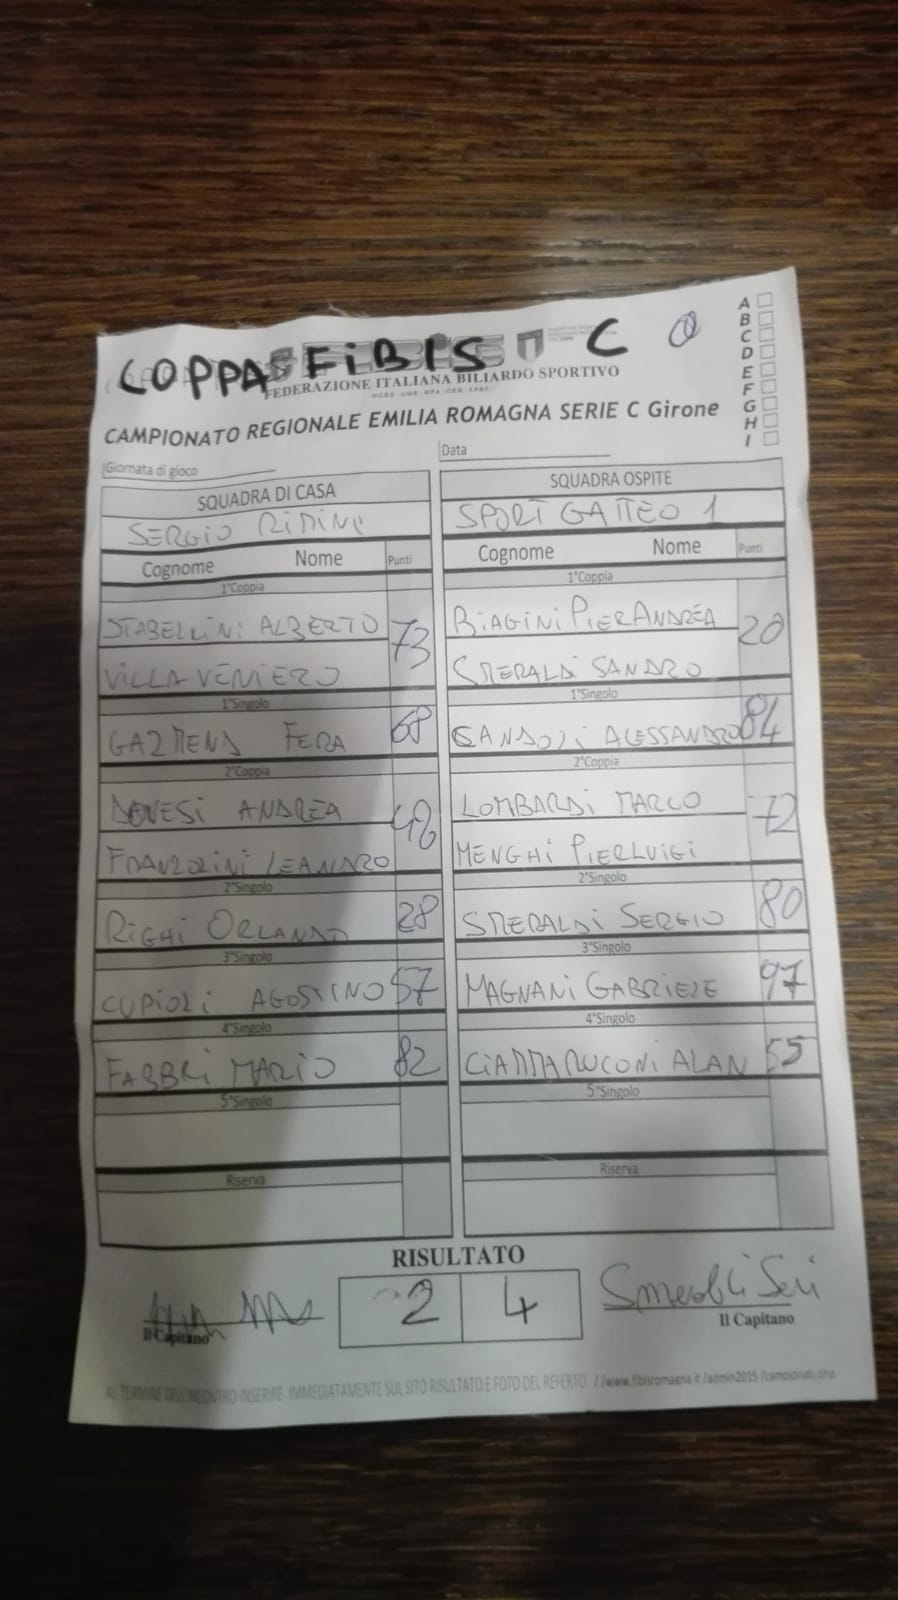 COPPA FIBIS C
FEDERAZIONE ITALIANA BILIARDO SPORTIVO
CAMPIONATO REGIONALE EMILIA ROMAGNA SERIE C Girone
A
B
C
D
E
F
G
H
I
Giornata di gioco
Data
SQUADRA DI CASA
SERGIO RIMINI
Cognome Nome Punti
1°Coppia
STABELLINI ALBERTO 73
VILLA VENIERO
1°Singolo
GAZMEND FERA 68
2°Coppia
ANDREA
LEANDRO
2°Singolo
RIGHI ORLANDO 28
3°Singolo
CUPIOLI AGOSTINO 57
4°Singolo
FABBRI MARIO 82
5°Singolo
Riserva
SQUADRA OSPITE
SPORT GATTEO 1
Cognome Nome Punti
1°Coppia
BIAGINI PIERANDREA 20
SMERALDI SANDRO
1°Singolo
SANDOLI ALESSANDRO 84
2°Coppia
LOMBARDI MARCO 72
MENGHI PIERLUIGI
2°Singolo
SMERALDI SERGIO 80
3°Singolo
MAGNANI GABRIELE 97
4°Singolo
CIAMMARUCONI ALAN 55
5°Singolo
Riserva
RISULTATO
2 4
Il Capitano
Il Capitano
AL TERMINE DELL'INCONTRO INSERIRE IMMEDIATAMENTE SUL SITO RISULTATO E FOTO DEL REFERTO //www.fibisromagna.it /admin2015 /campionati.php